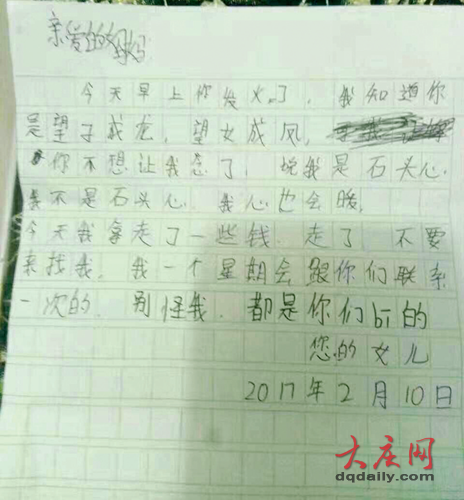 亲爱的妈妈
今天早上你发火了，我知道你
是望子成龙，望女成凤，
你不想让我念了，说我是石头心.
我不是石头心，我心也会暖，
今天我拿走了一些钱.走了 不要
来找我，我一个星期会跟你们联系
一次的，别怪我，都是你们bī的
您的女儿
2017年2月10日
大庆网
dqdaily.com